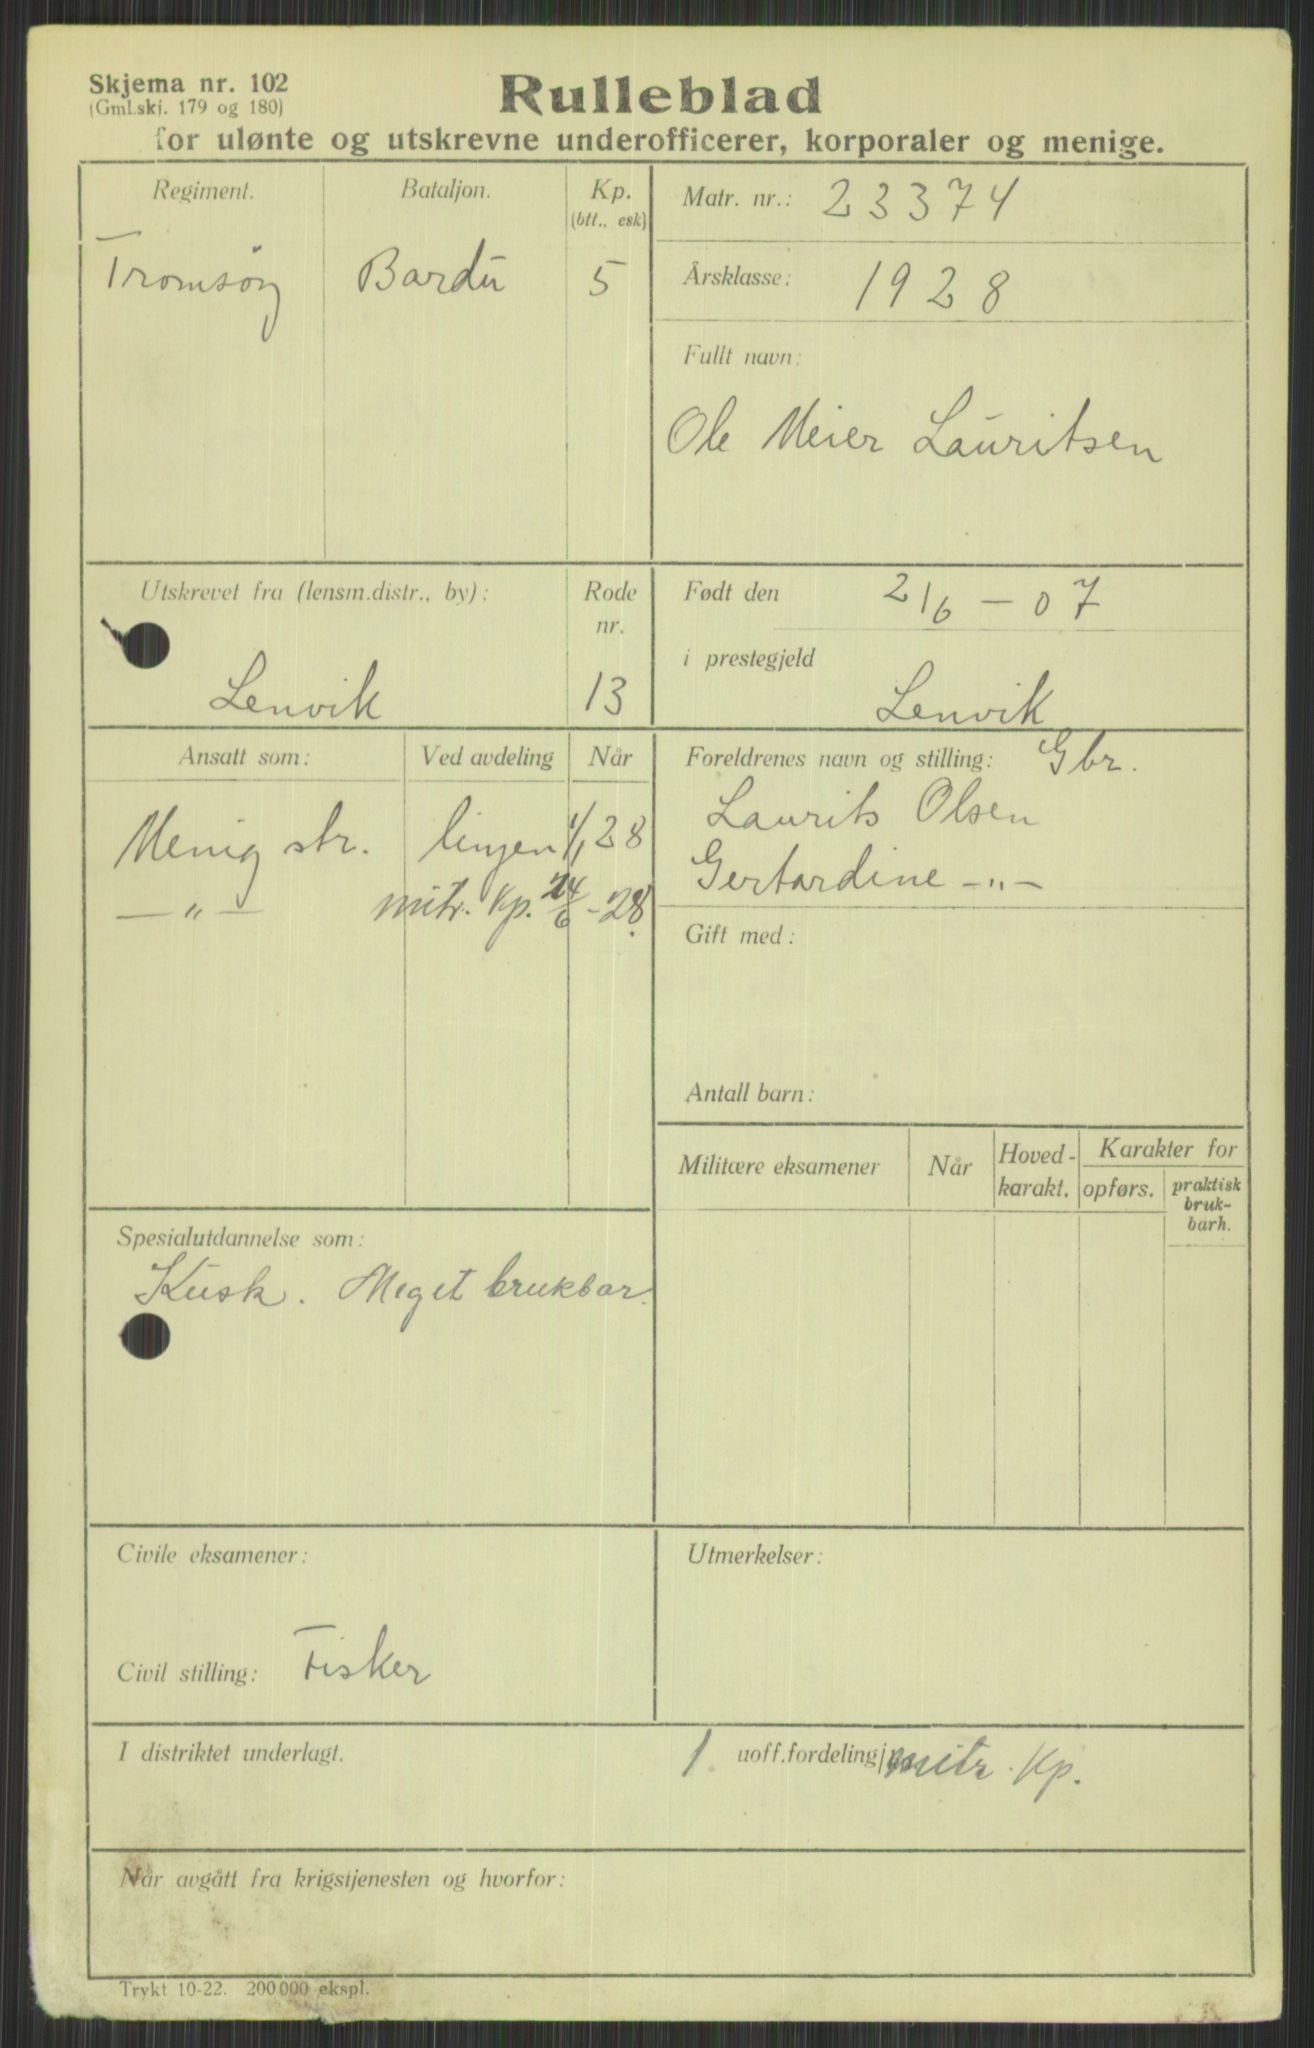 Skjema nr. 102
(Gml.skj. 179 og 180)
Rulleblad
for ulønte og utskrevne underofficerer, korporaler og menige.
Regiment. Bataljon. Kp.
(btt., esk)
Tromsøy Bardu 5
Matr. nr.: 23374
Årsklasse: 1928
Fullt navn:
Ole Meier Lauritsen
Utskrevet fra (lensm.distr., by): Rode
nr.
Lenvik 13
Født den 2/6 - 07
i prestegjeld
Lenvik
Ansatt som: Ved avdeling Når
Menig str. linjen 1/1 28
—"— mitr. Kp. 24/6 - 28.
Foreldrenes navn og stilling: Gbr.
Laurits Olsen
Gertardine —"—
Gift med:
Antall barn:
Militære eksamener Når Hoved-
karakt. Karakter for
opførs. praktisk
bruk-
barh.
Spesialutdannelse som:
Kusk. Meget brukbar.
Civile eksamener:
Civil stilling: Fisker
Utmerkelser:
I distriktet underlagt. 1. uoff.fordeling mitr. Kp.
Når avgått fra krigstjenesten og hvorfor:
Trykt 10-22. 200 000 ekspl.